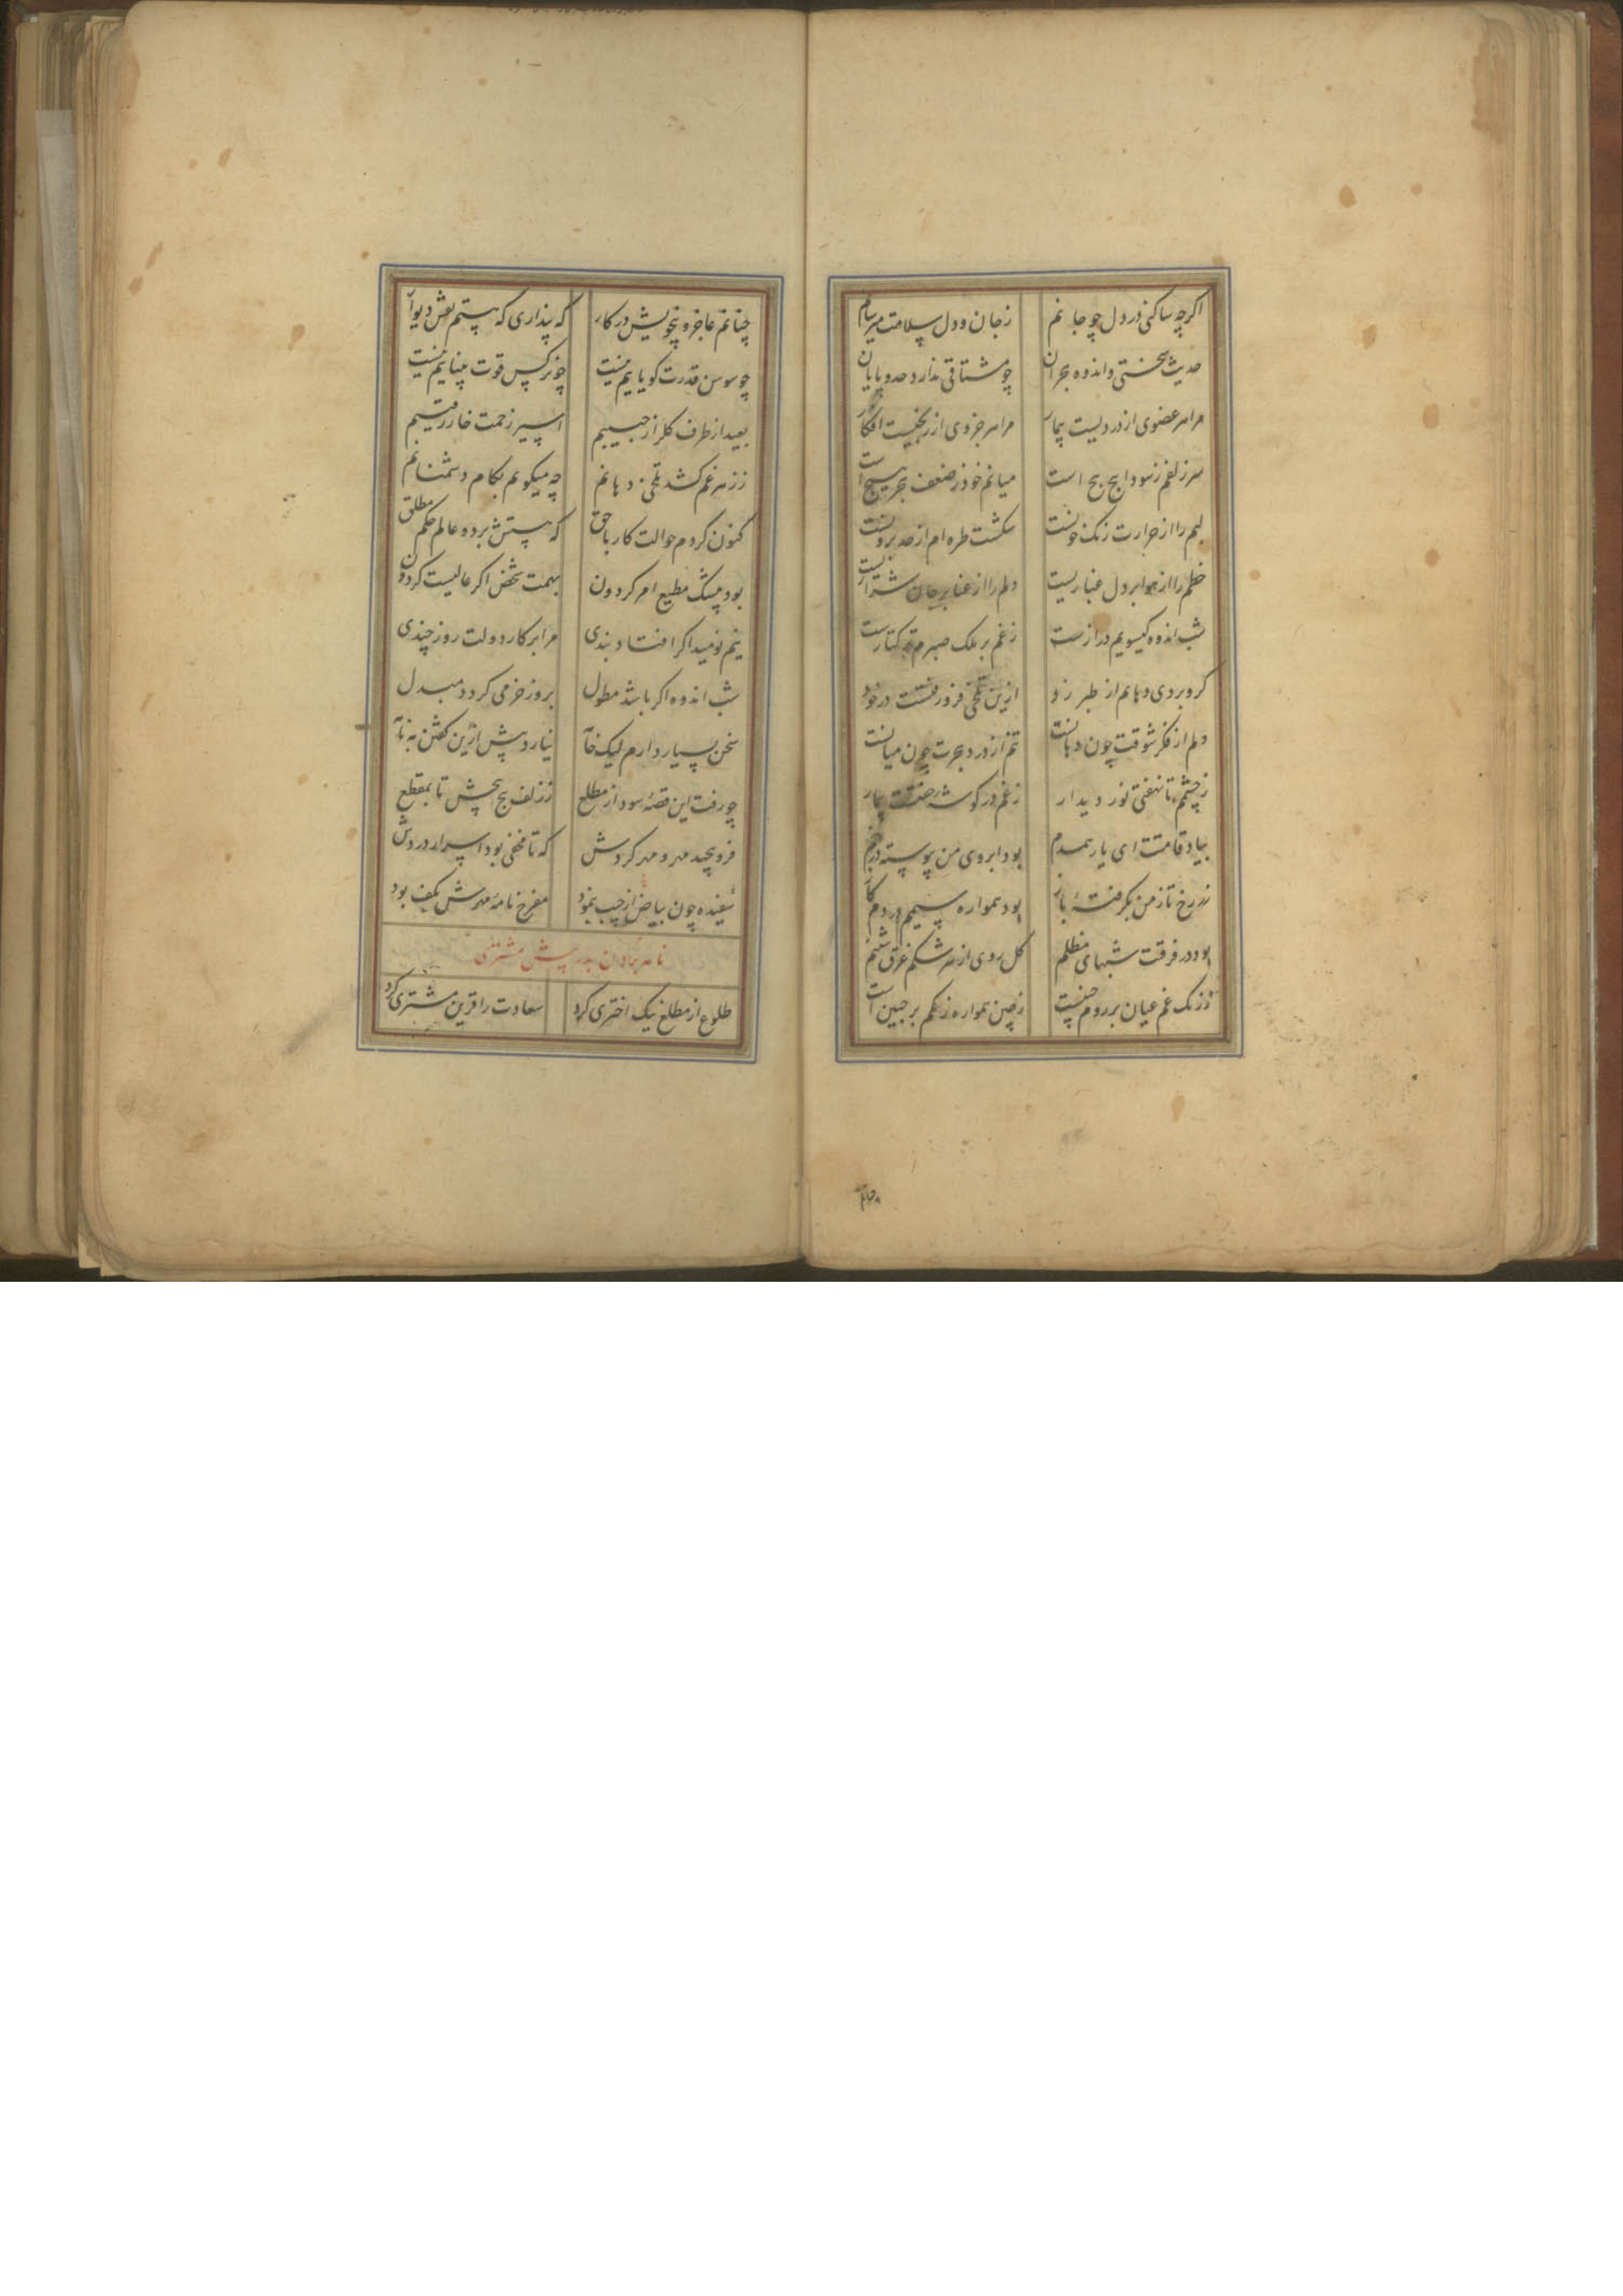 اکرچه ساکنی در دل چو جانم زجان و دل سلامت میرسانم
حدیث سختی و اندوه هجران چو مشتاقی ندارد حد و پایان
مرا هر عضوی از دردیست بیمار مرا هر جزوی از رنجیست افکار
سر زلفم زسودا پیچ پیچ است میانم خود ز ضعف هجر هیچ است
لبم را از حرارت رنک خونست شکست طره ام از حد برونست
خطم را از هوا بر دل غباریست دلم را از عنا بر جان شراریست
شب اندوه کیسویم درازست زغم بر ملک صبرم
کرو بردی دهانم از طبرزد ازین تلخی فرو رفتست در خود
دلم از فکر شوقت چون دهانت تنم از درد هجرت چون میانت
زچشمم تا نهفتی نور دیدار زغم در کوشه خفتست بیمار
بیاد قامتت ای یار همدم بود ابروی من پیوسته در خم
زرخ تا ز من بکرفته باز بود همواره سیمم در دم کاز
بود در فرقت شبهای مظلم کل روی از سرشکم غرق شبنم
ز زنک غم عیان بر روم چینست زچین همواره زنکم بر جبین است
چنانم عاجز و بیخویش در کار که پنداری که هستم نقش دیوار
چو سوسن قدرت کویاییم نیست چو نرکس قوت بیناییم نیست
بعید از طرف کلزار حبیبم اسیر زحمت خار رقیبم
ز زهر غم کشد تلخی دهانم چه میکویم بکام دشمنانم
کنون کردم حوالت کار با حق که هستش بر دو عالم حکم مطلق
بود بیشک مطیع امر کردون بهمت شخص اکر عالیست کردون
نیم نومید اکر افتاد بندی مرا بر کار دولت روز چندی
شب اندوه اکر باشد مطول بروز خرمی کردد مبدل
سخن بسیار دارم لیک خامه نیارد بیش ازین کفتن به نامه
چو رفت این قصه سودا ز مطلع ز زلف پیچ پیچش تا بمقطع
فرو پیچید مهر و مهر کردش که تا مخفی بود اسرار دردش
سفیده چون بیاض از جیب بنمود مفرح نامه مهرش بکف بود
نامه بردن بدر پیش مشتری
طلوع از مطلع نیک اختری کرد سعادت را قرین مشتری کرد
چنانم